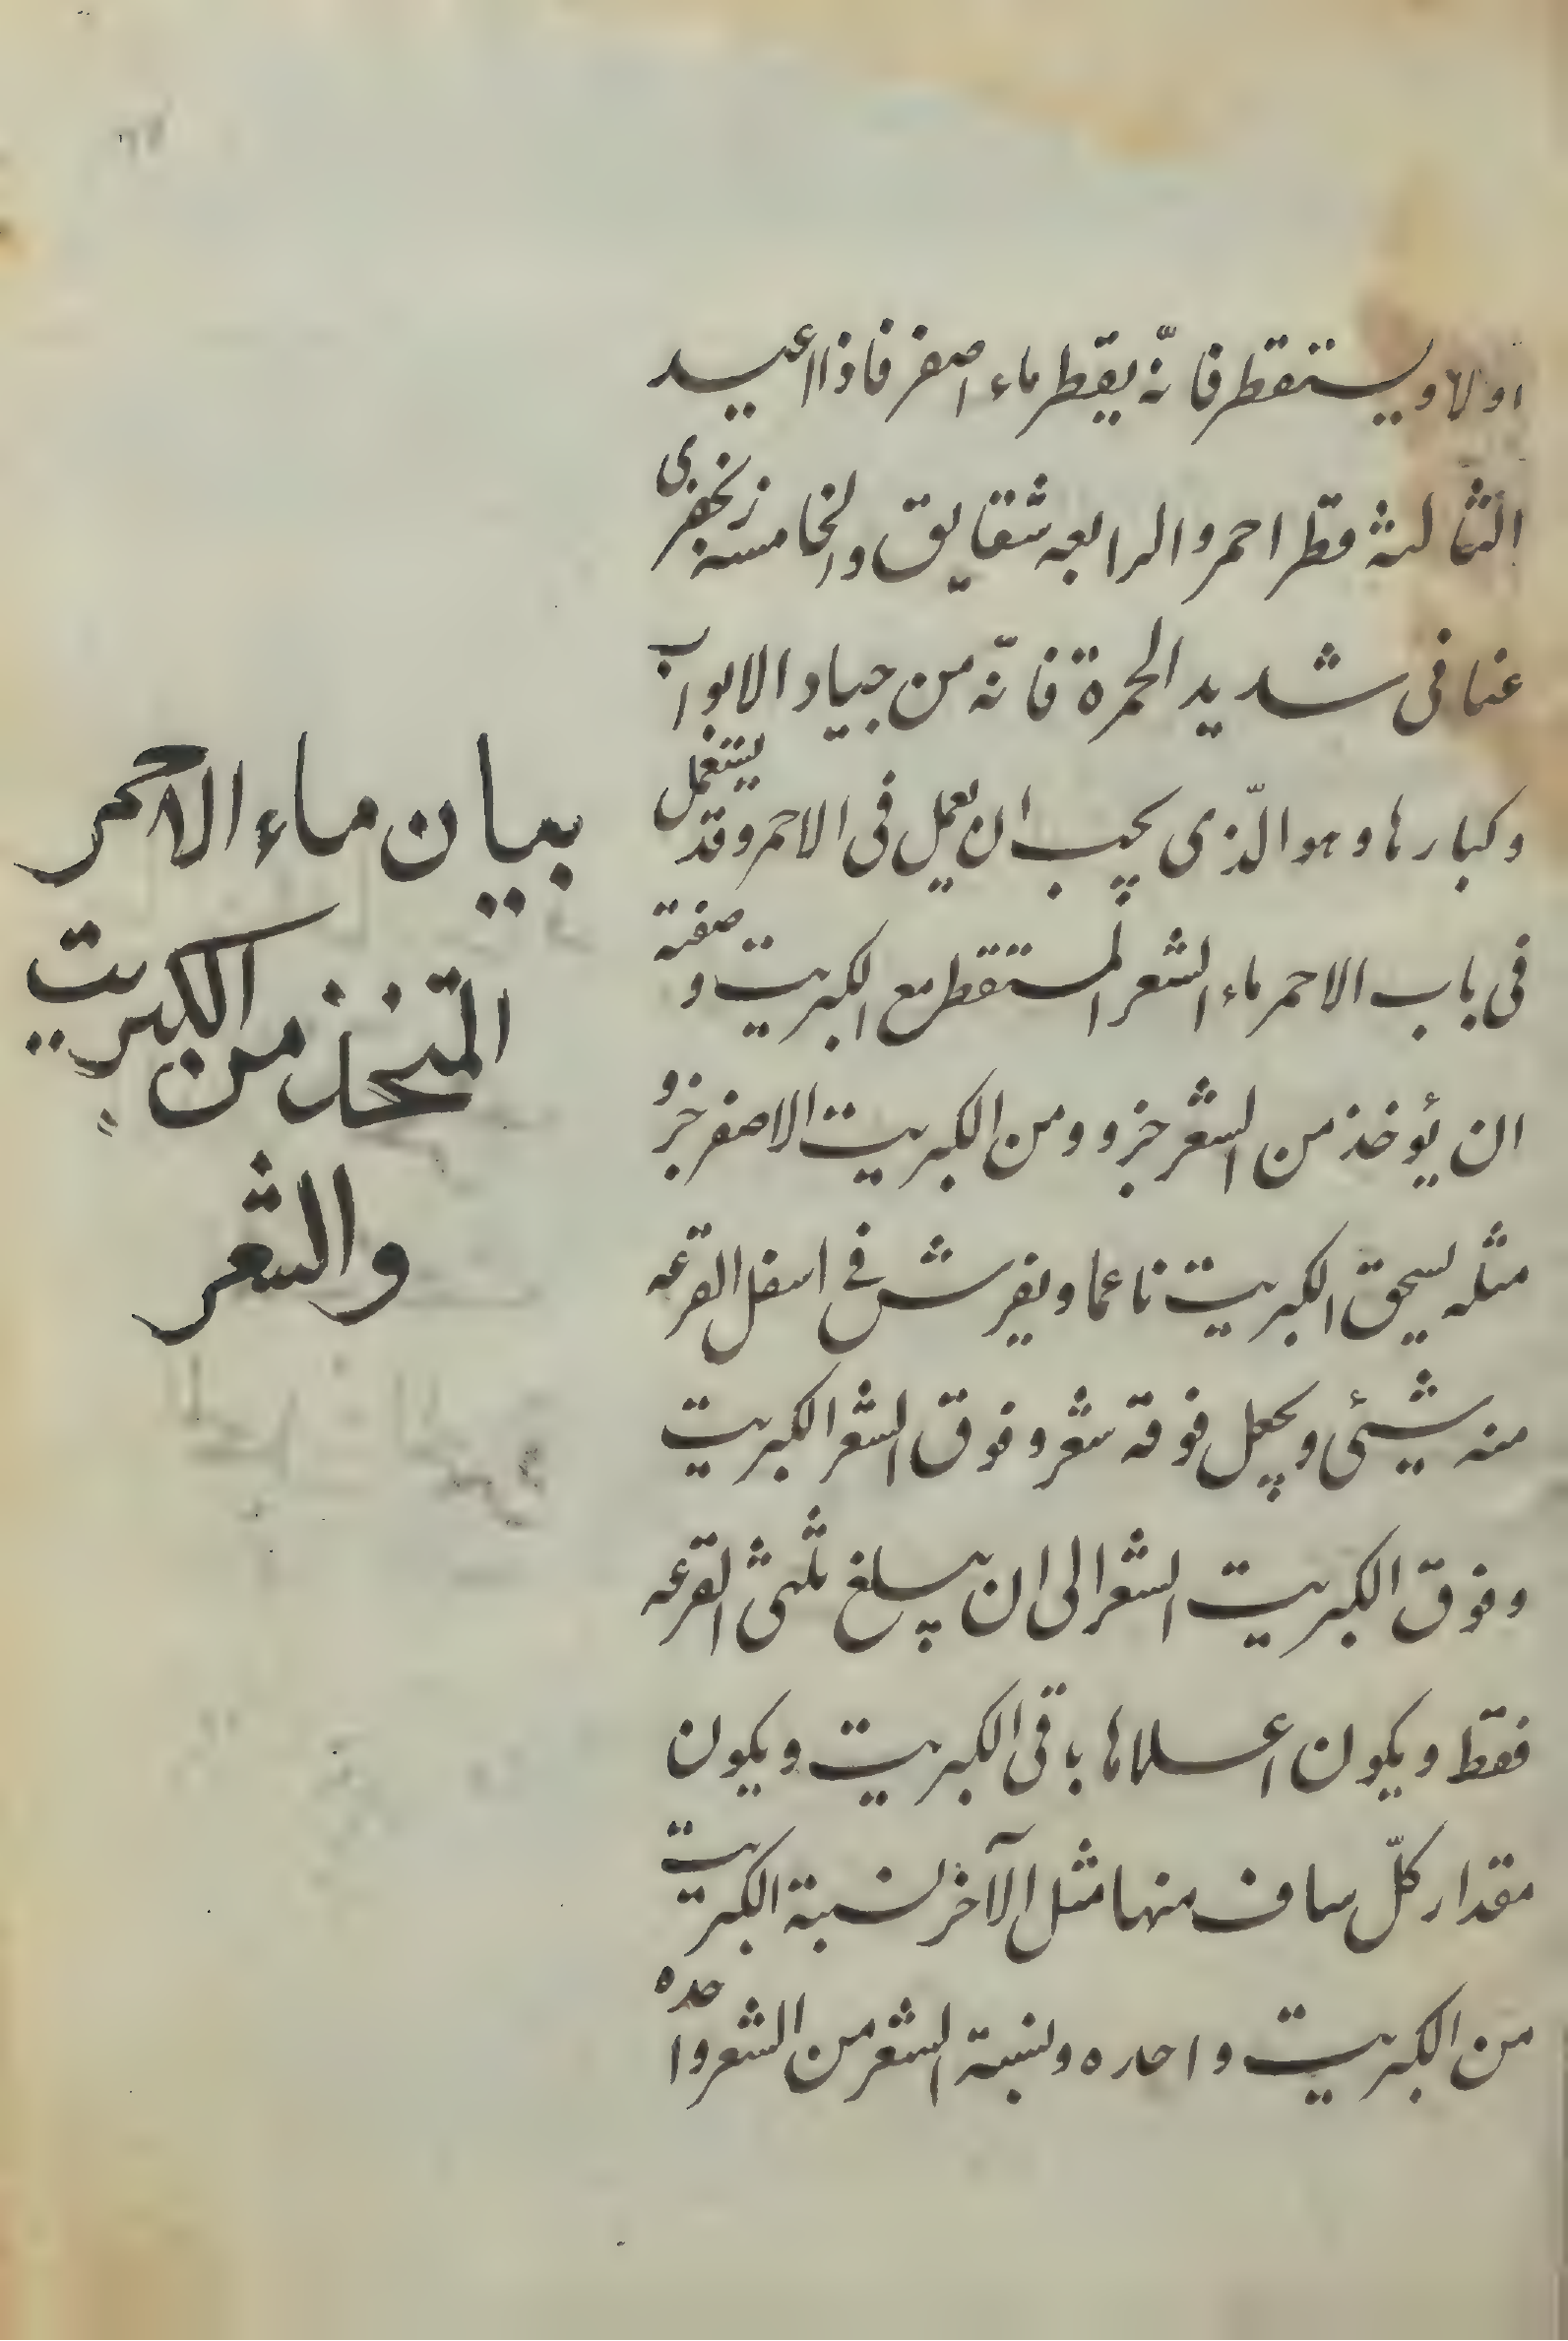 اولا ويستقطر فانّه يقطر ماء اصفر فاذا اعيد
الثالثة قطر احمر والرابعه شقايق والخامسه زنجفرى
عنافى شديد الحمرة فانّه من جياد الابواب
وكبارها وهو الّذى يجب ان يعمل فى الاحمر وقد يستعمل
فى باب الاحمر ماء الشعر المستقطر مع الكبريت وصفته
ان يؤخذ من الشعر جزو ومن الكبريت الاصفر جزو
مثله يسحق الكبريت ناعما ويفرش فى اسفل القرعه
منه شيئى ويجعل فوقه شعر وفوق الشعر الكبريت
وفوق الكبريت الشعر الى ان يبلغ ثلثى القرعه
فقط ويكون اعلاها باقى الكبريت ويكون
مقدار كلّ ساف منها مثل الآخر نسبة الكبريت
من الكبريت واحده ونسبة الشعر من الشعر واحده
بيان ماء الاحمر
المتخذ من الكبريت
والشعر